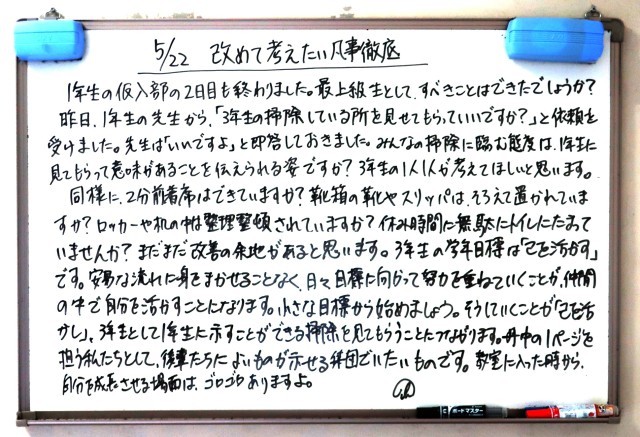 5/22 改めて考えたい凡事徹底
1年生の仮入部の2日目も終わりました。最上級生として、すべきことはできたでしょうか?
昨日、1年生の先生から、「3年生の掃除している所を見せてもらっていいですか?」と依頼を
受けました。先生は「いいですよ」と即答しておきました。みんなの掃除に臨む態度は、1年生に
見てもらって意味があることを伝えられる姿ですか?3年生の1人1人が考えてほしいと思います。
同様に、2分前着席はできていますか?靴箱の靴やスリッパは、そろえて置かれていま
すか?ロッカーや机の中は整理整頓されていますか?休み時間に無駄にトイレにたまって
いませんか?まだまだ改善の余地があると思います。3年生の学年目標は「己を活かす」
です。安易な流れに身をまかせることなく、日々目標に向かって努力を重ねていくことが、仲間
の中で自分を活かすことになります。小さな目標から始めましょう。そうしていくことが「己を活
かし」、3年生として1年生に示すことができる掃除を見てもらうことにつながります。丹中の1ページを
担う私たちとして、後輩たちによいものが示せる集団でいたいものです。教室に入った時から、
自分を成長させる場面は、ゴロゴロありますよ。
ボードマスター